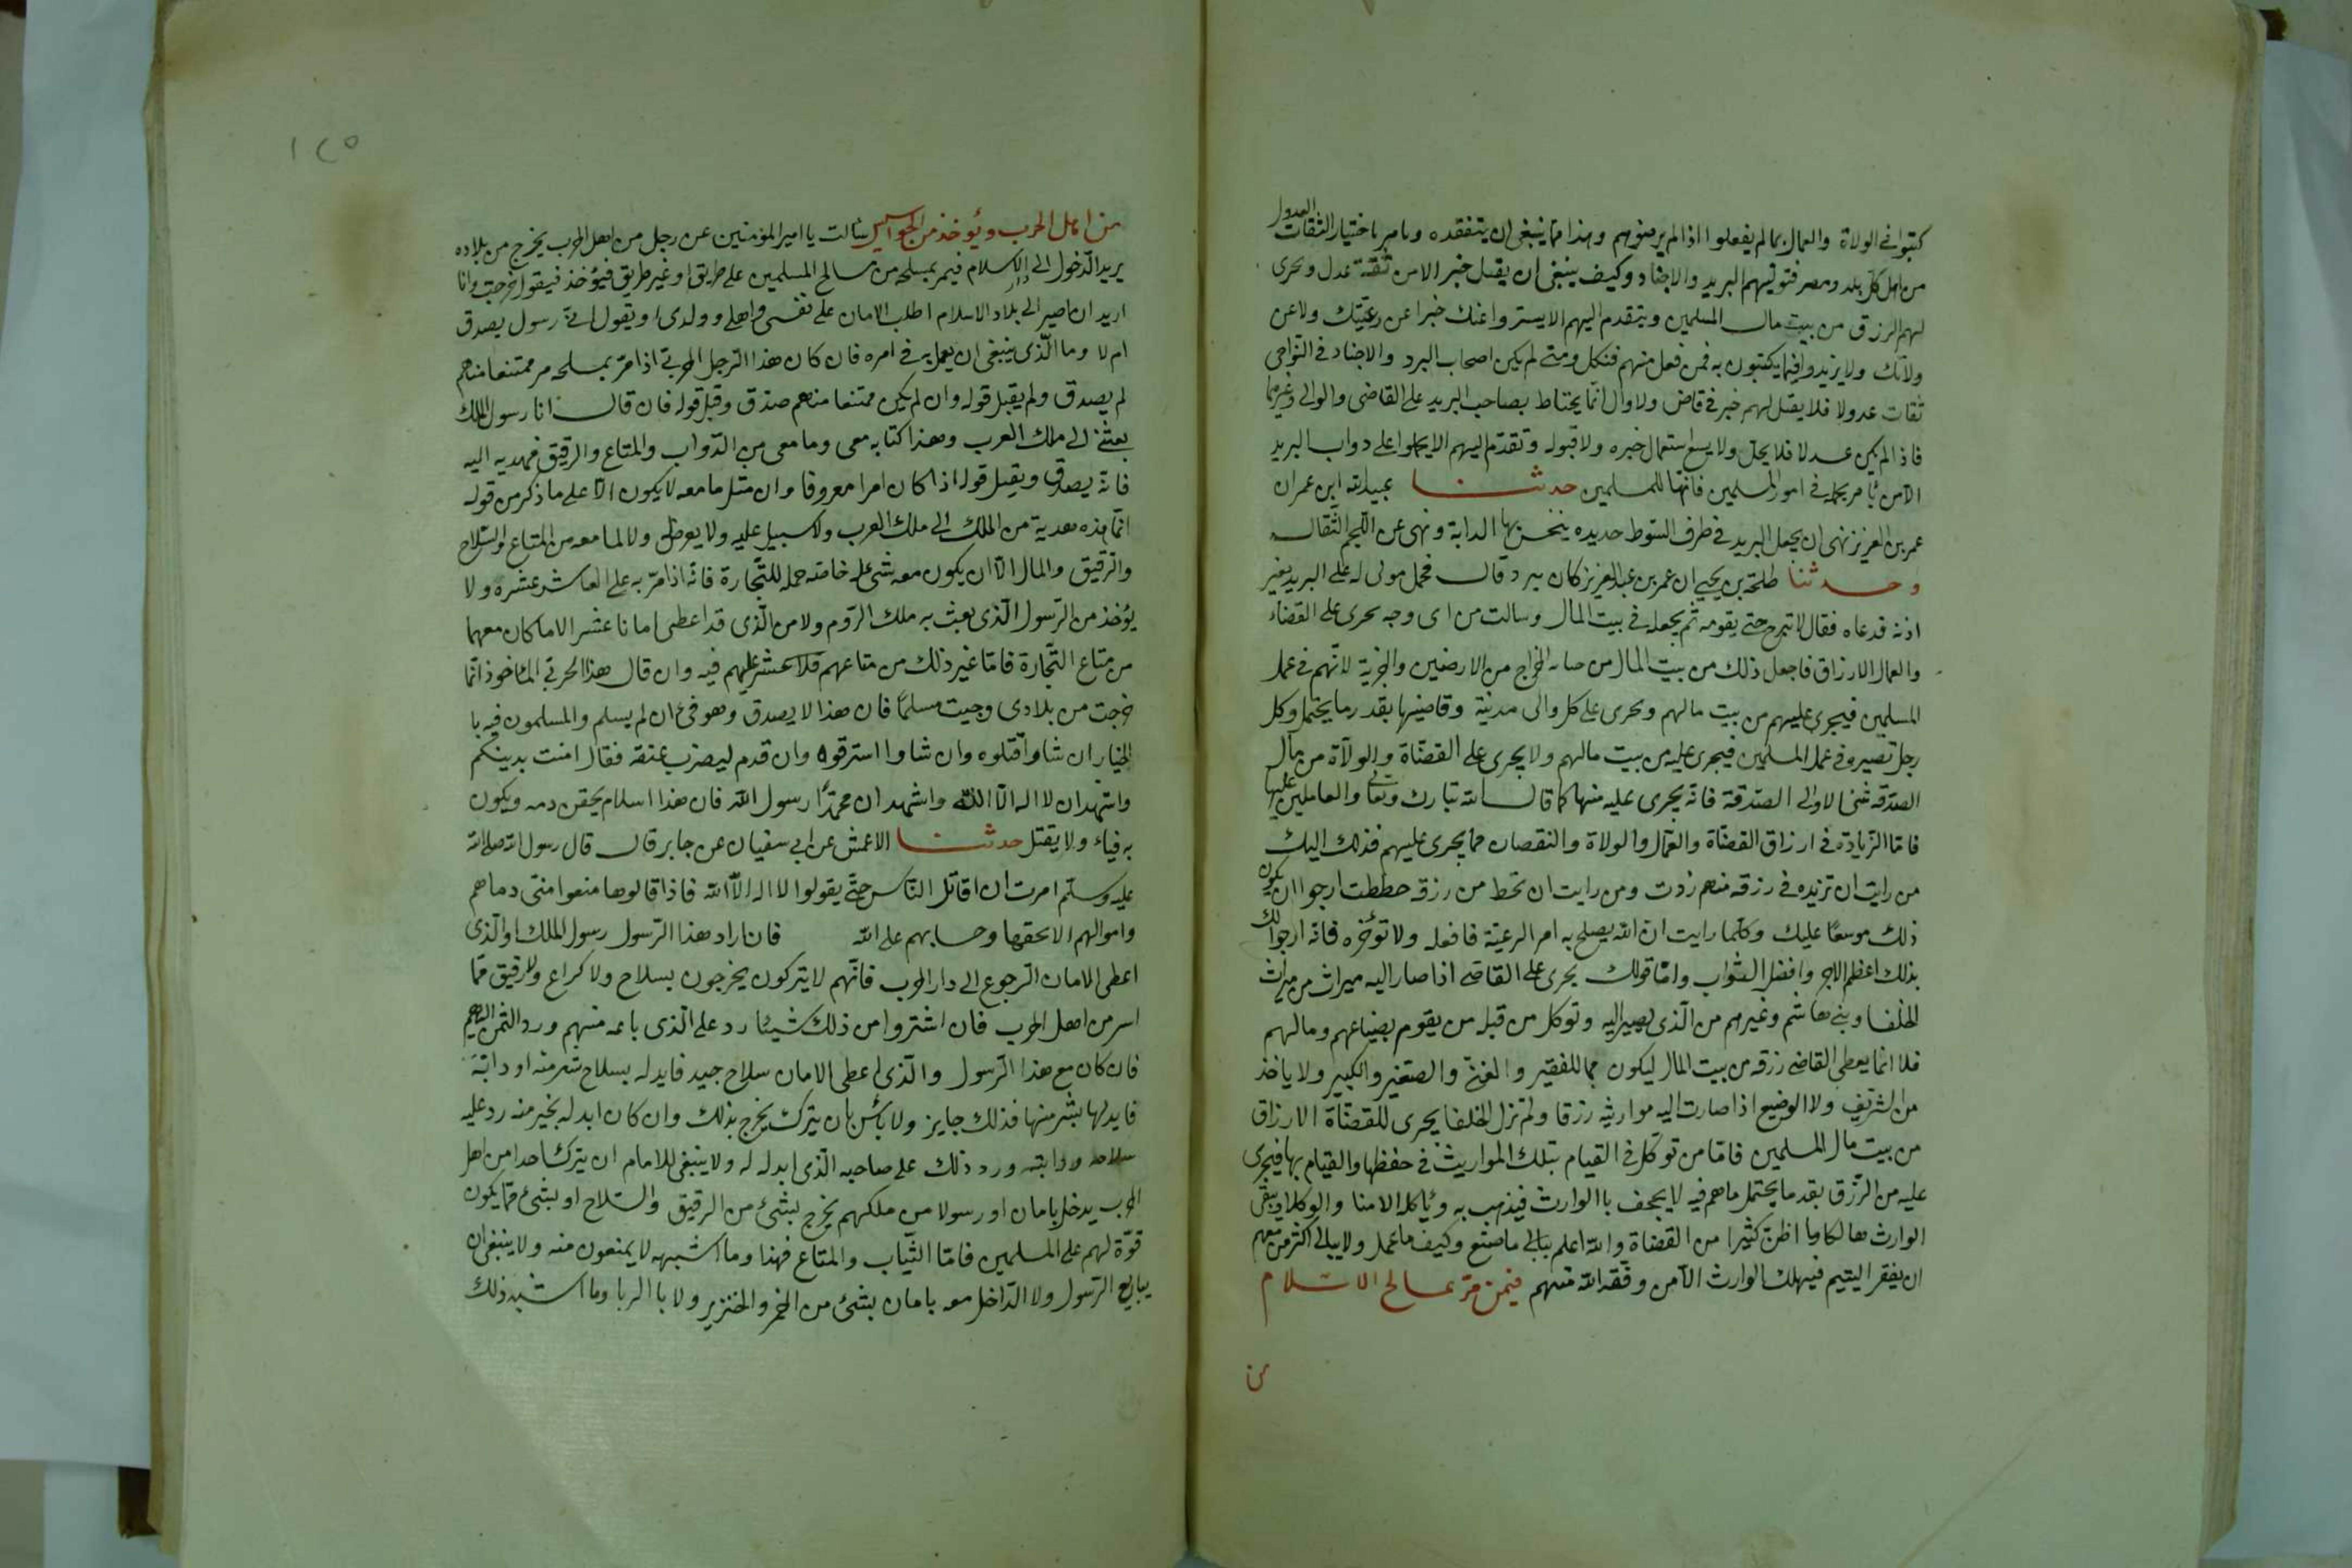 كتبوا في الولاة والعمال بما لم يفعلوا اذا لم يرضوهم وهذا مما ينبغى ان يتفقده ويامر باختيار الثقات العدول
من اهل كل بلد ومصر فتوليهم البريد والاخبار وكيف ينبغى ان يقبل خبر الا من ثقة عدل ويحرى
لهم الرزق من بيت مال المسلمين ويتقدم اليهم الا يستروا عنك خبرا عن رعيتك ولا عن
ولاتك ولا يزيدوا فيما يكتبون به فمن فعل منهم فنكل ومتى لم يكن اصحاب البرد والاخبار في النواحى
ثقات عدولا فلا يقبل لهم خبر في قاض ولا وال انما يحتاط بصاحب البريد على القاضى والوالى وغيرهما
فاذا لم يكن عدلا فلا يحل ولا يسع استعمال خبره ولا قبوله وتقدم اليهم الا يحملوا على دواب البريد
الا من تأمر بحمله في امور المسلمين فانها للمسلمين حدثنا عبيدالله ابن عمران
عمر بن العزيز نهى ان يجعل البريد في طرف السوط حديده ينخس بها الدابة ونهى عن اللجم الثقال
وحدثنا طلحة بن يحيى ان عمر بن عبد العزيز كان يبرد قال فحمل مولى له على البريد بغير
اذنه فدعاه فقال لا تبرح حتى يقومه ثم يجعله في بيت المال وسالت من اى وجه يحرى على القضاء
والعمال الارزاق فاجعل ذلك من بيت المال من جباية الخراج من الارضين والجزية لانهم في عمل
المسلمين فيجرى عليهم من بيت مالهم ويحرى على كل والى مدينة وقاضيها بقدر ما يحتمل وكل
رجل تصيره في عمل المسلمين فيجرى عليه من بيت مالهم ولا يحرى على القضاة والولاة من مال
الصدقه شئ الا والى الصدقة فانه يجرى عليه منها كما قال الله تبارك وتعالى والعاملين عليها
فاما الزيادة في ارزاق القضاة والعمال والولاة والنقصان مما يجرى عليهم فذلك اليك
من رايت ان تزيده في رزقه منهم زدت ومن رايت ان تحط من رزقه حططت ارجوا ان يكون
ذلك موسعا عليك وكلما رايت ان الله يصلح به امر الرعية فافعله ولا تؤخره فانه ارجوا لك
بذلك اعظم الاجر وافضل الثواب واما قولك يجرى على القاضى اذا صار اليه ميراث من ميراث
الخلفا وبنى هاشم وغيرهم من الذى يصير اليه وتوكل من قبله من يقوم بضياعهم ومالهم
فلا انما يعطى القاضى رزقه من بيت المال ليكون مما للفقير والغنى والصغير والكبير ولا ياخذ
من الشريف ولا الوضيع اذا صارت اليه مواريثه رزقا ولم تزل الخلفا يحرى للقضاة الارزاق
من بيت مال المسلمين فاما من توكل في القيام بتلك المواريث في حفظها والقيام بها فيجرى
عليه من الرزق بقدر ما يحتمل ما هم فيه لا يجحف باالوارث فيذهب به ويأكل الامنا والوكلا ويبقى
الوارث هالكا وما اظن كثيرا من القضاة والله اعلم يبالى ما صنع وكيف ما عمل ولا يبالى اكثر من معهم
ان يفقر اليتيم فيهلك الوارث الا من وفقه الله منهم فيمن مر بمسالح الاسلام
من
١٢٥
من اهل الحرب ويؤخذ من الجواسيس سالت يا امير المؤمنين عن رجل من اهل الحرب يخرج من بلاده
يريد الدخول الى دار الاسلام فيمر بمسلحه من مسالح المسلمين على طريق او غير طريق فيؤخذ فيقول خرجت وانا
اريد ان اصير الى بلاد الاسلام اطلب الامان على نفسى واهلى وولدى او يقول انى رسول يصدق
ام لا وما الذى ينبغى ان يعمل به في امره فان كان هذا الرجل الحربى اذا مر بمسلحه مر ممتنعا منهم
لم يصدق ولم يقبل قوله وان لم يكن ممتنعا منهم صدق وقبل قوله فان قال انا رسول الملك
بعثنى الى ملك العرب وهذا كتابه معى وما معى من الدواب والمتاع والرقيق فهديه اليه
فانه يصدق ويقبل قوله اذا كان امرا معروفا وان مثل ما معه لا يكون الا على ما ذكر من قوله
انما هذه هدية من الملك الى ملك العرب ولا سبيل عليه ولا يعرض ولا لما معه من المتاع والسلاح
والرقيق والمال الا ان يكون معه شئ له خاصة حمله للتجارة فانه اذا مر به على العاشر عشره ولا
يؤخذ من الرسول الذى بعث به ملك الروم ولا من الذى قد اعطى امانا عشر الا ما كان معهما
من متاع التجارة فاما غير ذلك من متاعهم فلا عشر عليهم فيه وان قال هذا الحربى المأخوذ انما
خرجت من بلادى وجيت مسلما فان هذا لا يصدق وهو فئ ان لم يسلم والمسلمون فيه با
لخيار ان شاوا قتلوه وان شاوا استرقوه وان قدم ليضرب عنقه فقال امنت بدينكم
واشهد ان لا اله الا الله واشهد ان محمدا رسول الله فان هذا اسلام يحقن دمه ويكون
به فياء ولا يقتل حدثنا الاعمش عن ابى سفيان عن جابر قال قال رسول الله صلى الله
عليه وسلم امرت ان اقاتل الناس حتى يقولوا لا اله الا الله فاذا قالوها منعوا منى دماهم
واموالهم الا بحقها وحسابهم على الله فان اراد هذا الرسول رسول الملك او الذى
اعطى الامان الرجوع الى دار الحرب فانهم لا يتركون يخرجون بسلاح ولا كراع ولا رقيق مما
اسر من اهل الحرب فان اشتروا من ذلك شيئا رد على الذى باعه منهم ورد الثمن اليهم
فان كان مع هذا الرسول والذى اعطى الامان سلاح جيد فابدله بسلاح شر منه او دابة
فابدلها بشر منها فذلك جايز ولا بأس بان يترك يخرج بذلك وان كان ابدله بخير منه رد عليه
سلاحه ودابته ورد ذلك على صاحبه الذى ابدله له ولا ينبغى للامام ان يترك احدا من اهل
الحرب يدخل بامان او رسولا من ملكهم يخرج بشئ من الرقيق والسلاح او بشئ مما يكون
قوة لهم على المسلمين فاما الثياب والمتاع فهذا وما اشبهه لا يمنعون منه ولا ينبغى ان
يبايع الرسول ولا الداخل معه بامان بشئ من الخمر والخنزير ولا باالربا وما اشبه ذلك